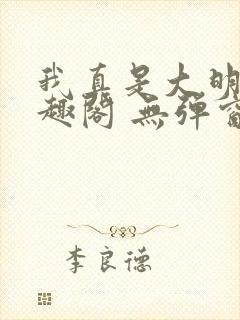 我真是大明
趣閣 無彈窗
李良德